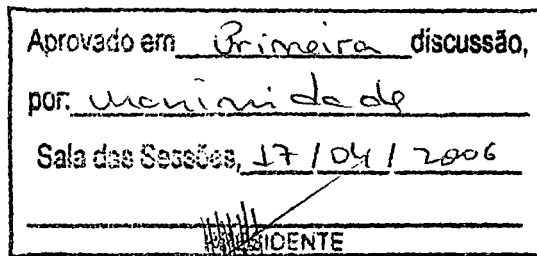 Aprovado em Primeira discussão,
por: unanimidade
Sala das Sessões, 17 / 04 / 2006
PRESIDENTE